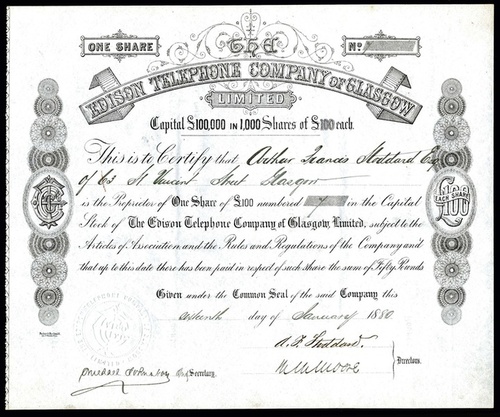 ONE SHARE
THE
No
EDISON TELEPHONE COMPANY OF GLASGOW
LIMITED
Capital £100,000 IN 1,000 Shares of £100 each.
This is to Certify that Arthur Francis Stoddard Esq
of 63 St Vincent Street Glasgow
is the Proprietor of One Share of £100 numbered in the Capital
Stock of The Edison Telephone Company of Glasgow, Limited, subject to the
Articles of Association and the Rules and Regulations of the Company and
that up to this date there has been paid in respect of such share the sum of Fifty Pounds
EACH SHARE
£100
Given under the Common Seal of the said Company this
day of January 1880
A. F. Stoddard.
Directors.
Secretary.
Moore